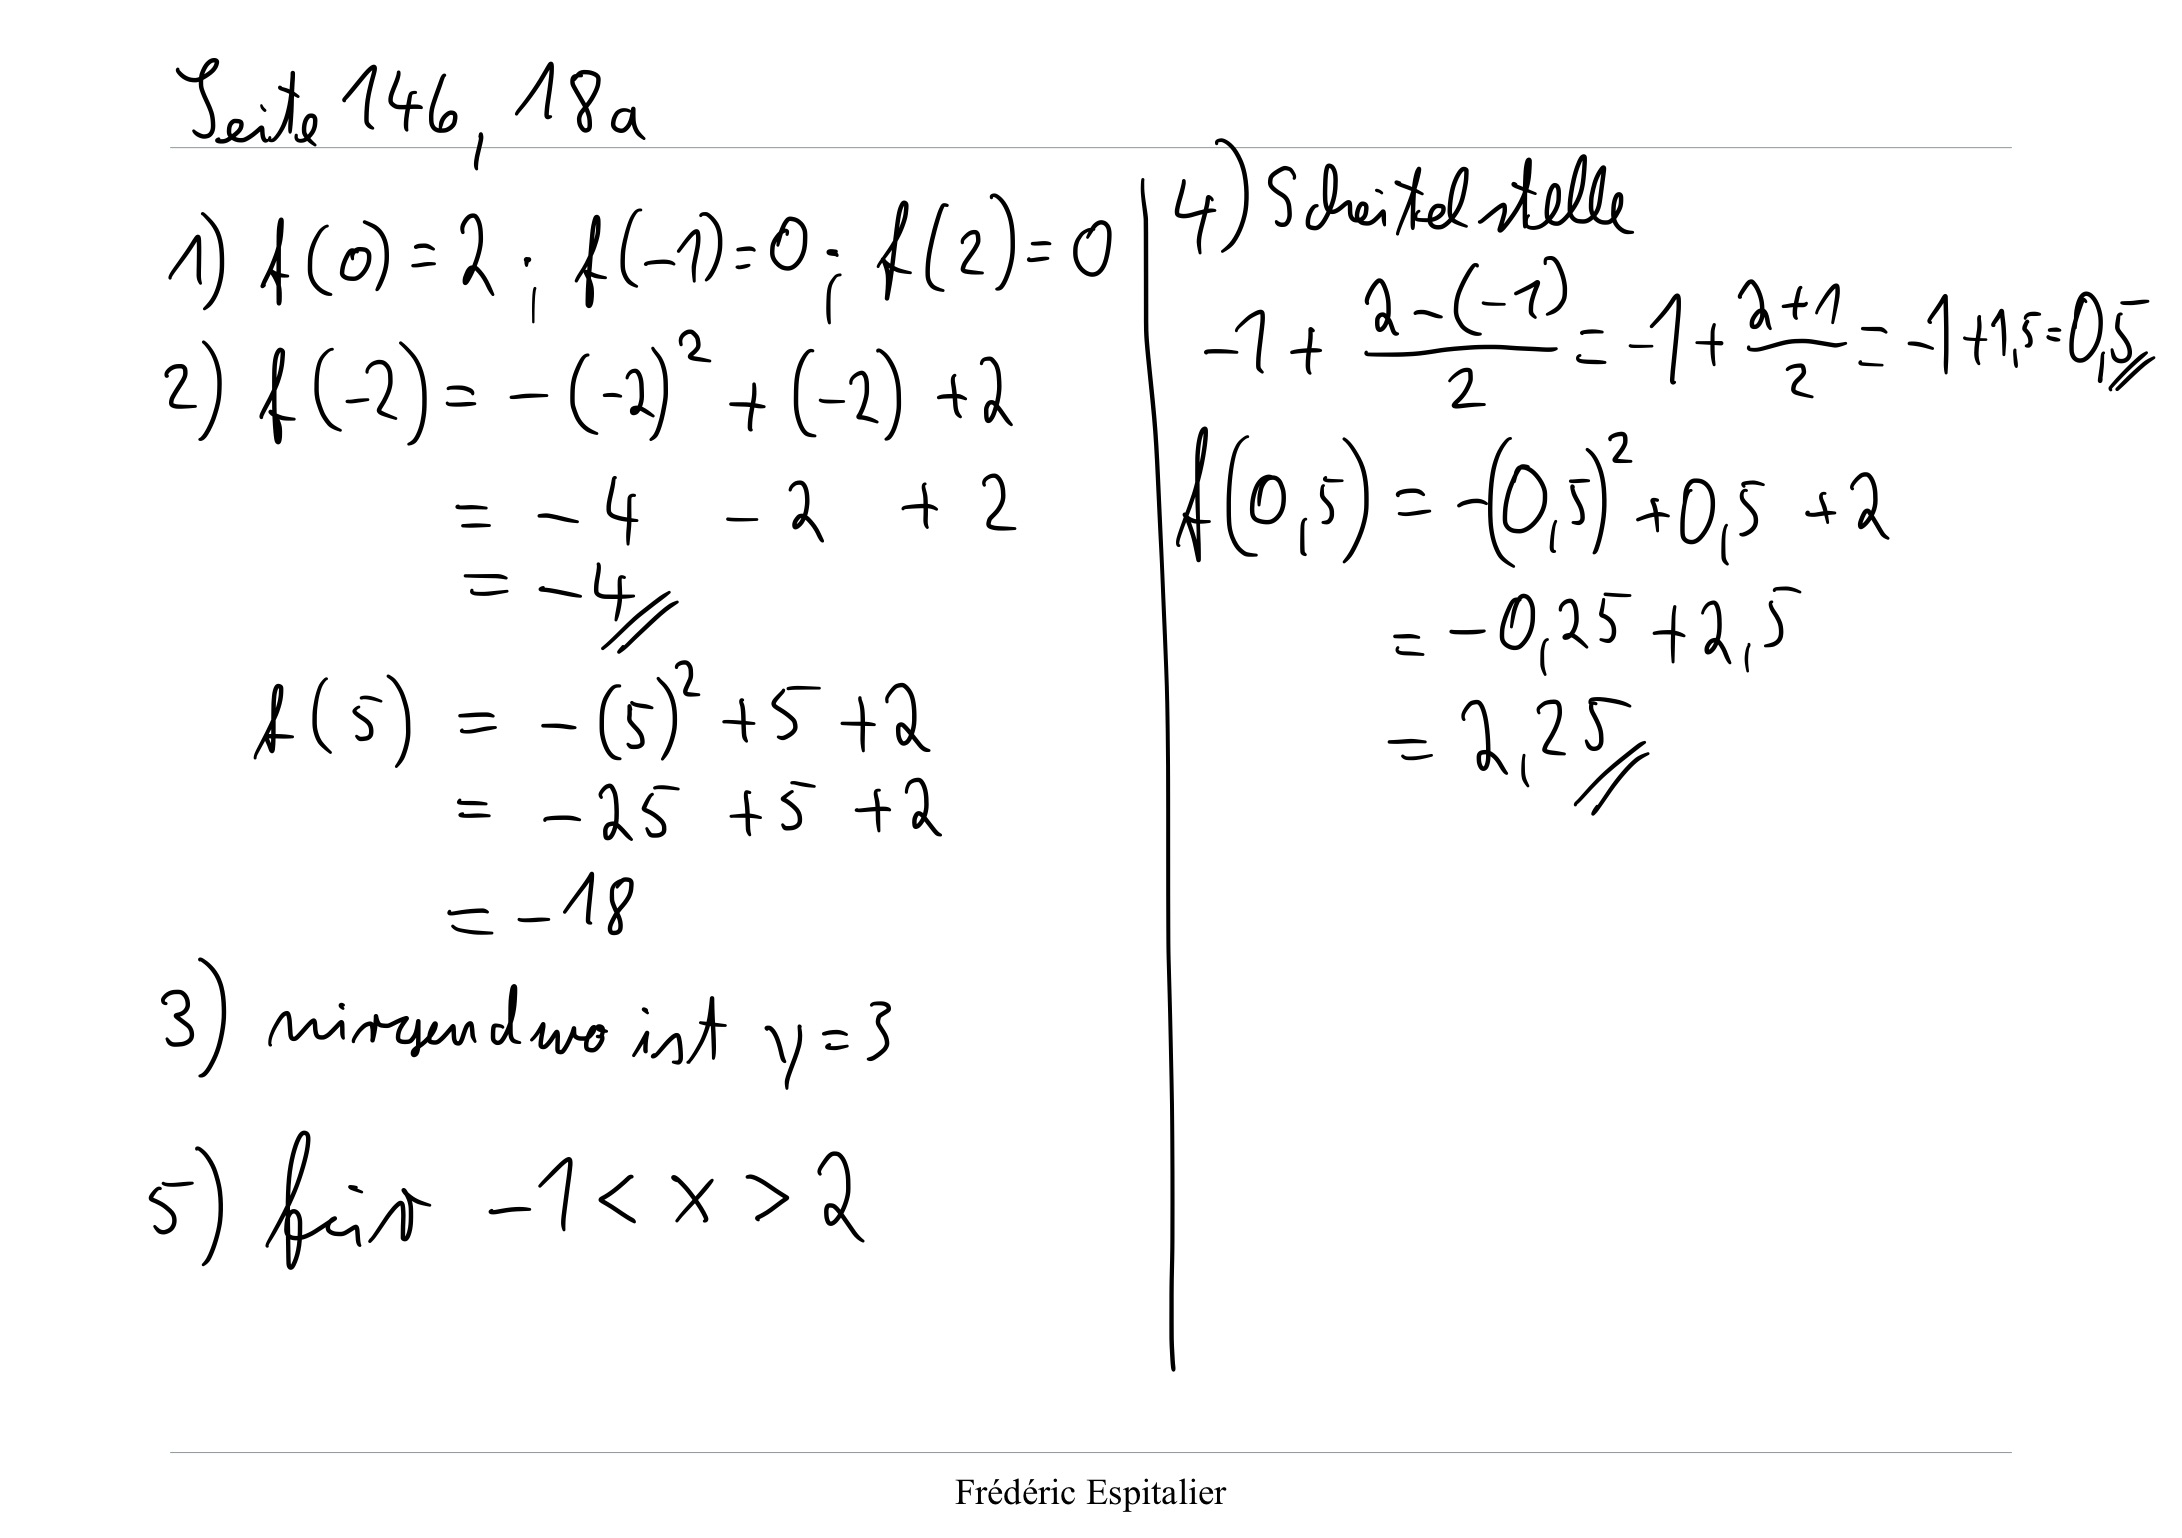 Seite 146, 18a
1) f(0) = 2 ; f(-1) = 0 ; f(2) = 0
2) f(-2) = -(-2)² + (-2) + 2
= -4 - 2 + 2
= -4
f(5) = -(5)² + 5 + 2
= -25 + 5 + 2
= -18
3) nirgendwo ist y = 3
5) für -1 < x > 2
4) Scheitelstelle
-1 + \frac{2-(-1)}{2} = -1 + \frac{2+1}{2} = -1 + 1,5 = 0,5
f(0,5) = -(0,5)² + 0,5 + 2
= -0,25 + 2,5
= 2,25
Frédéric Espitalier